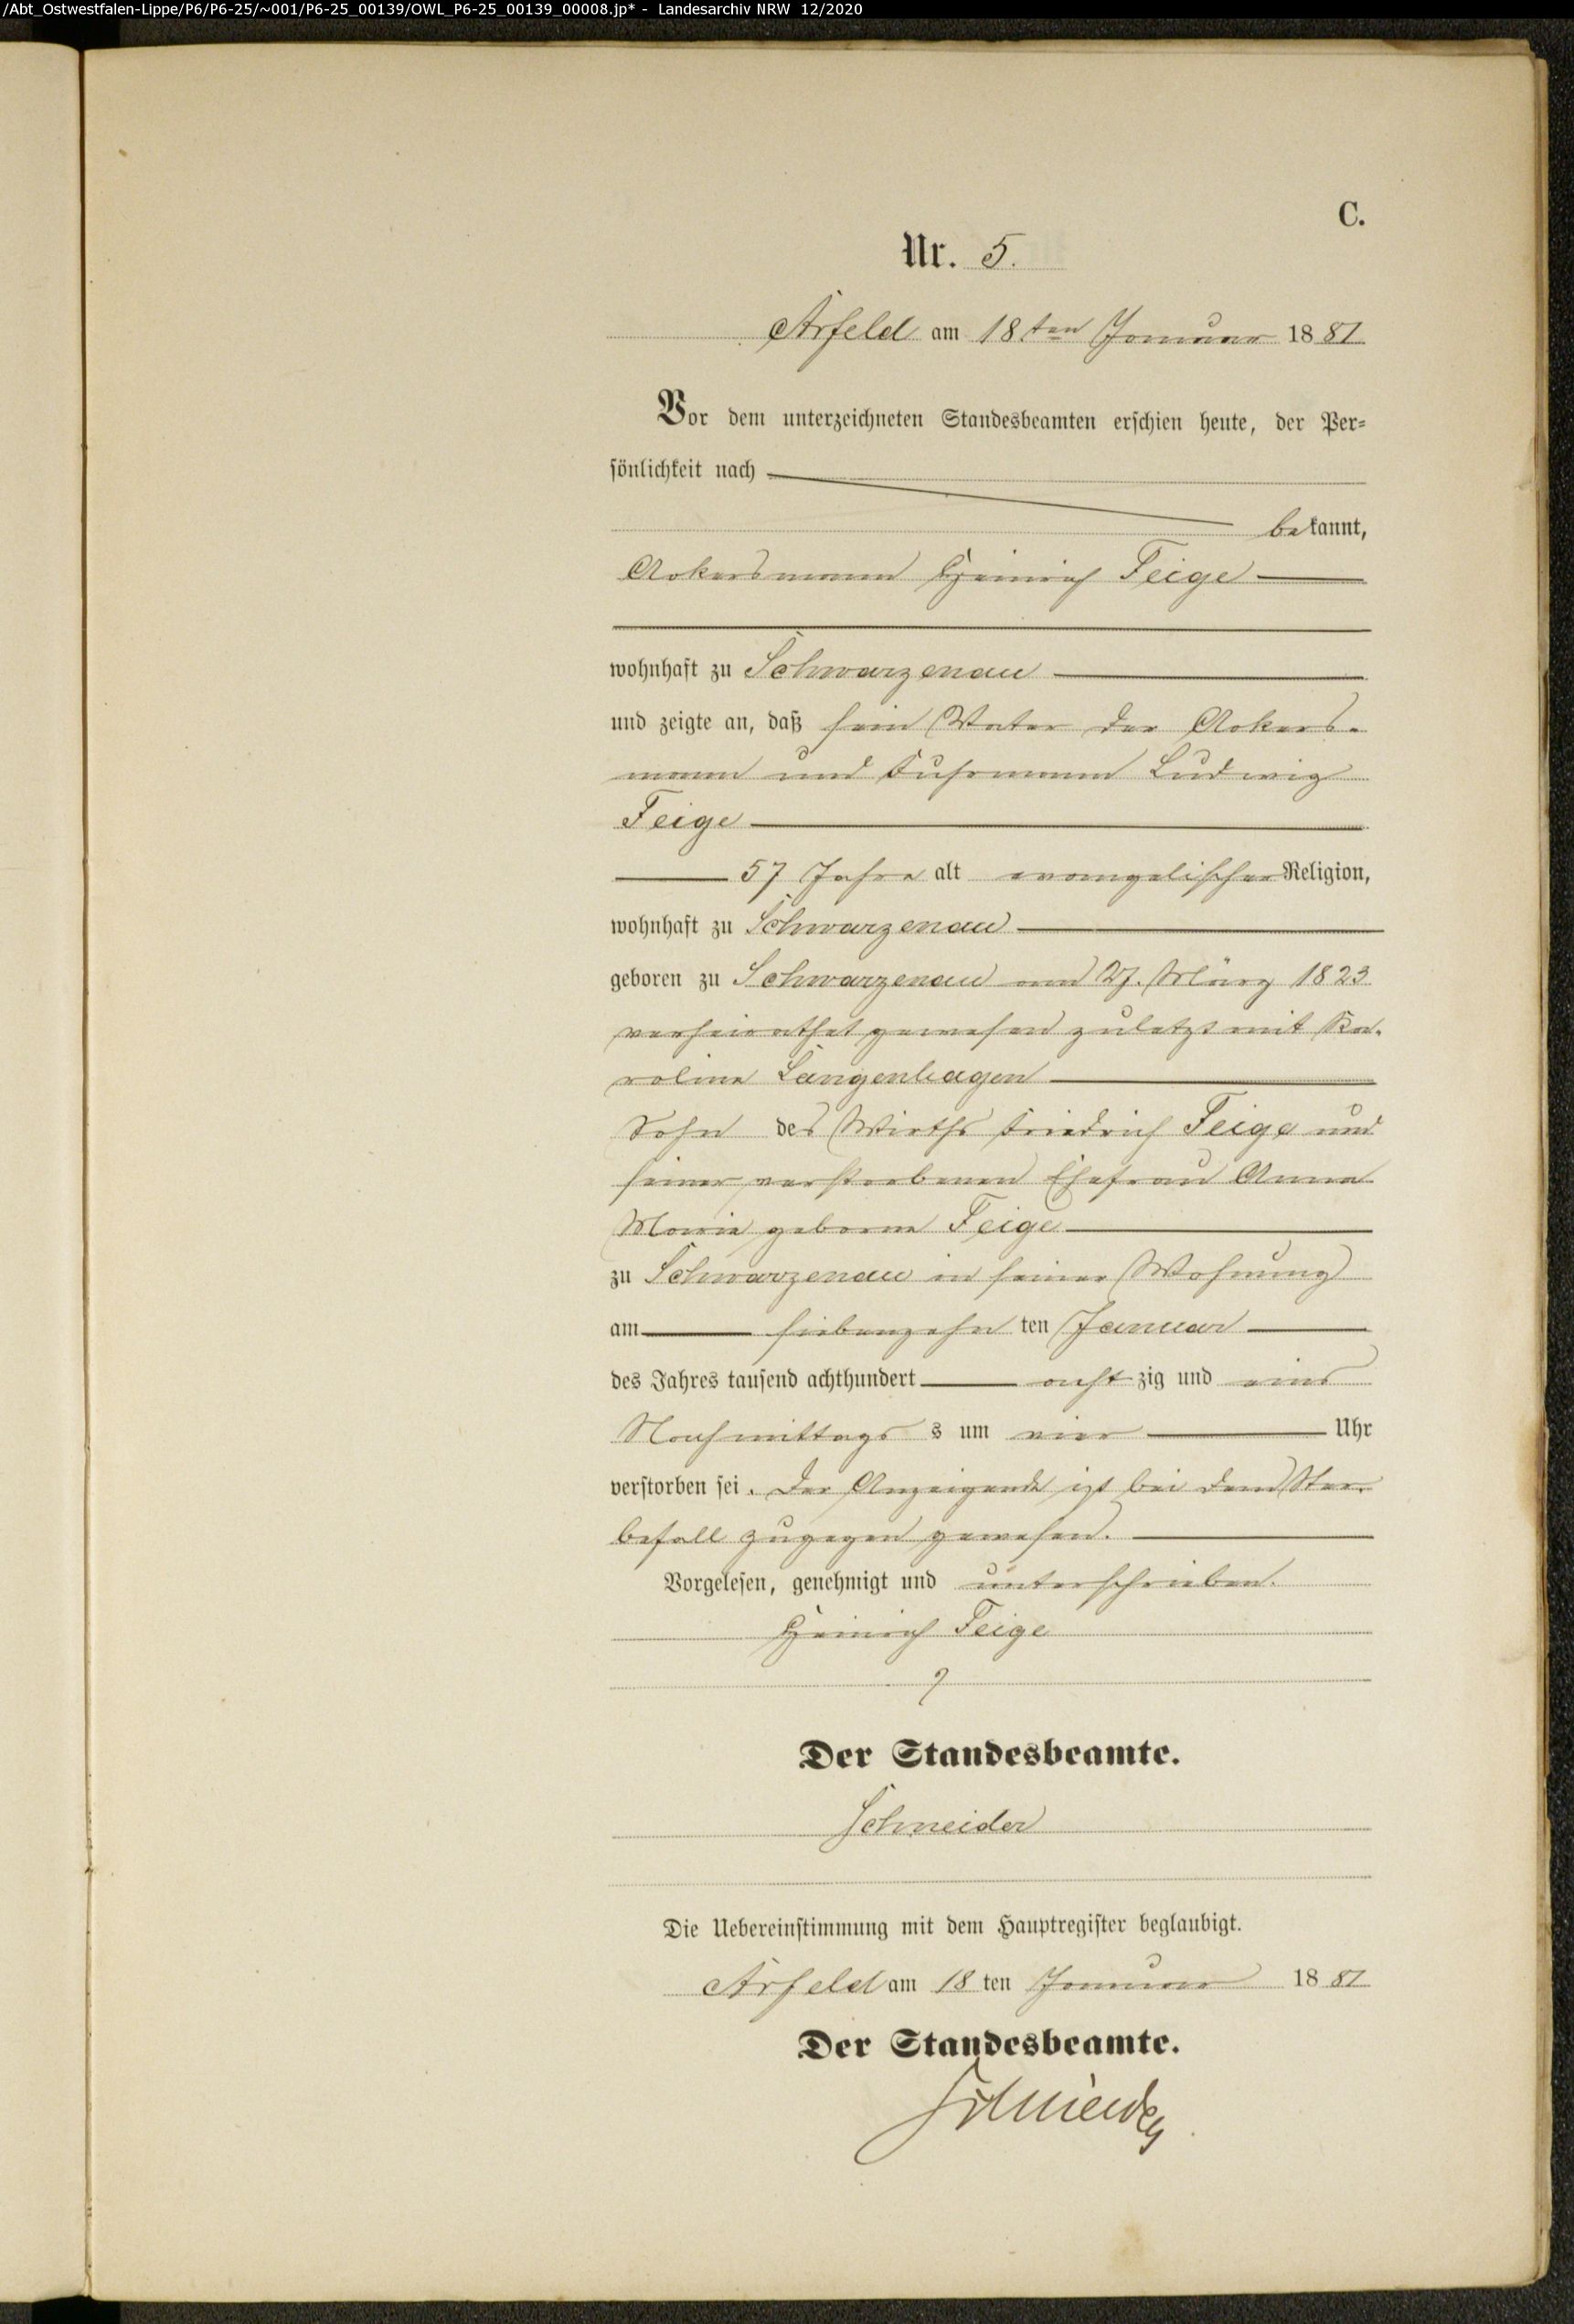 /Abt_Ostwestfalen-Lippe/P6/P6-25/~001/P6-25_00139/OWL_P6-25_00139_00008.jp* - Landesarchiv NRW 12/2020
C.
Nr. 5.
Arfeld am 18ten Januar 1881
Vor dem unterzeichneten Standesbeamten erschien heute, der Per-
sönlichkeit nach
bekannt,
Ackersmann Heinrich Feige
wohnhaft zu Schwarzenau
und zeigte an, daß sein Vater der Ackers-
mann und Fuhrmann Ludwig
Feige
57 Jahre alt evangelischer Religion,
wohnhaft zu Schwarzenau
geboren zu Schwarzenau am 27. März 1823
verheirathet gewesen zuletzt mit Ka-
roline Langenhagen
Sohn des Wirths Friedrich Feige und
seiner verstorbenen Ehefrau Anna
Marie geborne Feige
zu Schwarzenau in seiner Wohnung
am siebenzehn ten Januar
des Jahres tausend achthundert acht zig und eins
Nachmittags s um vier Uhr
verstorben sei. Der Anzeigende ist bei dem Ster-
befall zugegen gewesen.
Vorgelesen, genehmigt und unterschrieben.
Heinrich Feige
Der Standesbeamte.
Schneider
Die Uebereinstimmung mit dem Hauptregister beglaubigt.
Arfeld am 18 ten Januar 1881
Der Standesbeamte.
Schneider